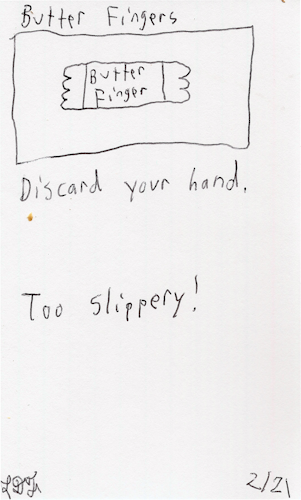 Butter Fingers
Butter
Finger
Discard your hand.
Too slippery!
2/21